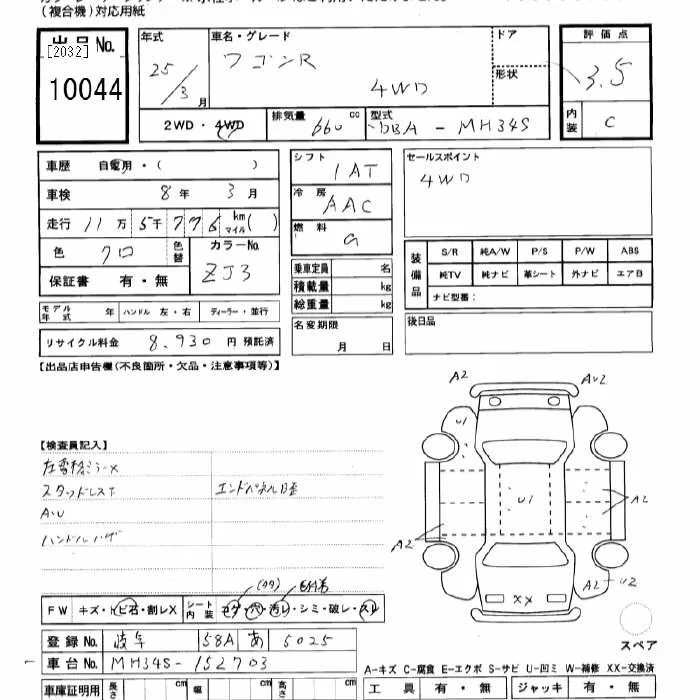 (複合機)対応用紙
出品No.
[2032]
10044
年式 25/3月
車名・グレード ワゴンR 4WD
ドア
形状
評価点 3.5
内装 C
2WD・4WD
排気量 660 cc
型式 DBA-MH34S
車歴 自家用・( )
車検 8年 3月
走行 11万 5千 776 km マイル( )
色 クロ 色替
カラーNo. ZJ3
保証書 有・無
モデル年式 年 ハンドル 左・右 ディーラー・並行
リサイクル料金 8,930 円 預託済
シフト IAT
冷房 AAC
燃料 G
乗車定員 名
積載量 kg
総重量 kg
名変期限
月 日
セールスポイント
4WD
装備品
S/R 純A/W P/S P/W ABS
純TV 純ナビ 革シート 外ナビ エアB
ナビ型番:
後日品
【出品店申告欄(不良箇所・欠品・注意事項等)】
A2 AU2
【検査員記入】
スタッドレス
エンドパネル
A・U
ハンドル
U1
A2
A2
U2
XX
スペア
FW キズ・トビ石・割レX シート内装 コゲ・穴・汚レ・シミ・破レ・スレ
登録No. 58A あ 5025
車台No. MH34S-152703
A-キズ C-腐食 E-エクボ S-サビ U-凹ミ W-補修 XX-交換済
車庫証明用 長さ cm 幅 cm 高さ cm
工具 有・無 ジャッキ 有・無